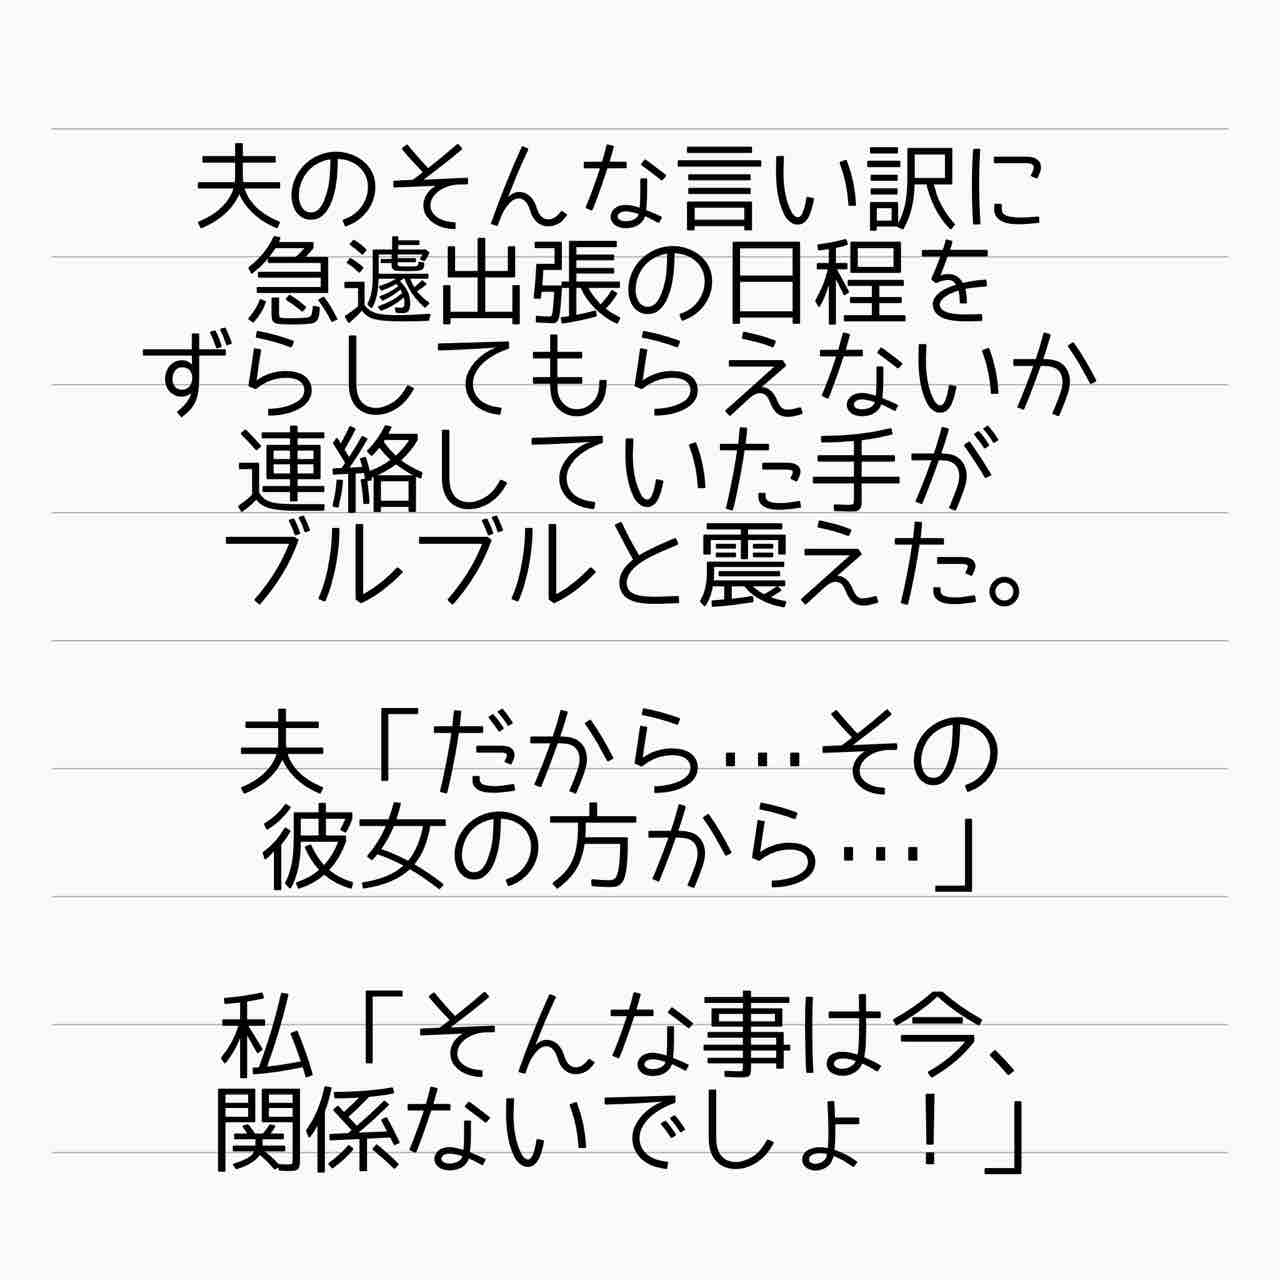 夫のそんな言い訳に
急遽出張の日程を
ずらしてもらえないか
連絡していた手が
ブルブルと震えた。
夫「だから…その
彼女の方から…」
私「そんな事は今、
関係ないでしょ！」